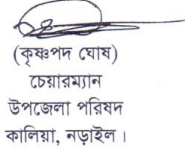 (কৃষ্ণপদ ঘোষ)
চেয়ারম্যান
উপজেলা পরিষদ
কালিয়া, নড়াইল।